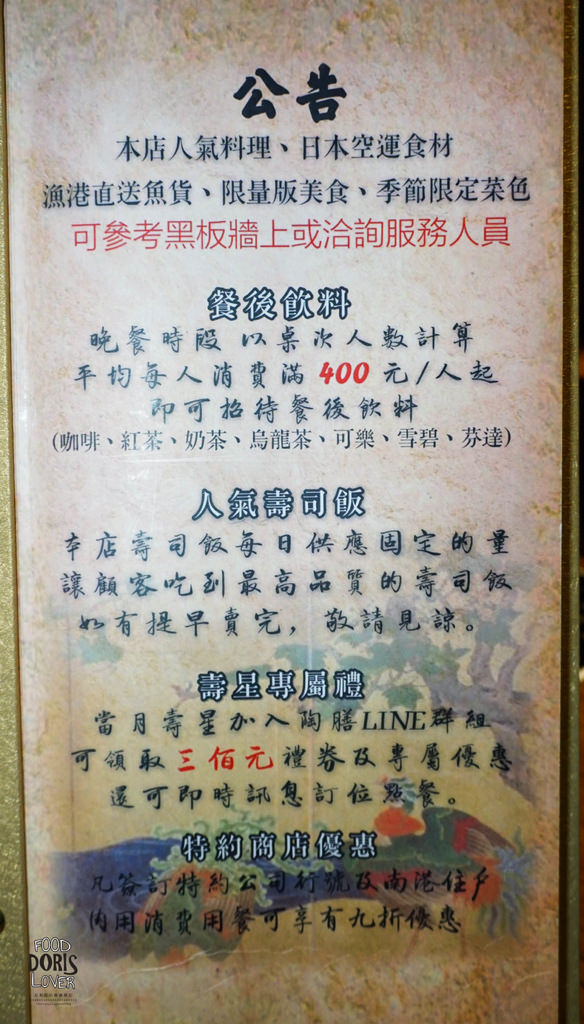 公告
本店人氣料理、日本空運食材
漁港直送魚貨、限量版美食、季節限定菜色
可參考黑板牆上或洽詢服務人員
餐後飲料
晚餐時段 以桌次人數計算
平均每人消費滿 400 元/人起
即可招待餐後飲料
(咖啡、紅茶、奶茶、烏龍茶、可樂、雪碧、芬達)
人氣壽司飯
本店壽司飯每日供應固定的量
讓顧客吃到最高品質的壽司飯
如有提早賣完，敬請見諒。
壽星專屬禮
當月壽星加入陶膳LINE群組
可領取三佰元禮券及專屬優惠
還可即時訊息訂位點餐。
特約商店優惠
凡簽訂特約公司行號及南港住戶
內用消費用餐可享有九折優惠
FOOD
DORIS
LOVER